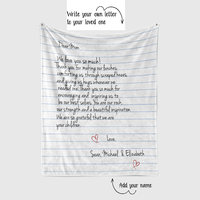 Write your own letter
to your loved one
Dear Mum
We love you so much!
Thank you for making our lunches,
comforting us through scraped knees
and giving us hugs whenever we
needed one. Thank you so much for
encouraging and inspiring us to
be our best selves. You are our rock,
our strength and a beautiful mum.
We are so grateful that we are
your children.
Love,
Sean, Michael & Elizabeth
Add your name